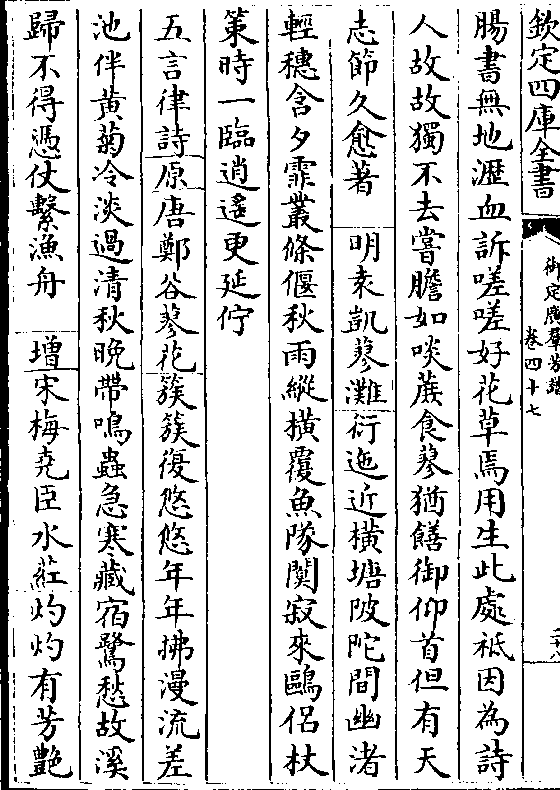 欽定四庫全書
御定廣羣芳譜
卷四十七
腸書無地瀝血訴嗟嗟好花草焉用生此處祗因為詩
人故故獨不去嘗膽如啖蔗食蓼猶饍御仰首但有天
志節久愈著　明袁凱蓼灘衍迤近橫塘陂陀間幽渚
輕穗含夕霏叢條偃秋雨縱橫覆魚隊闃寂來鷗侶杖
策時一臨逍遙更延佇
五言律詩原唐鄭谷蓼花簇簇復悠悠年年拂漫流差
池伴黃菊冷淡過清秋晚帶鳴蟲急寒藏宿鷺愁故溪
歸不得憑仗繫漁舟　增宋梅堯臣水葒灼灼有芳艷